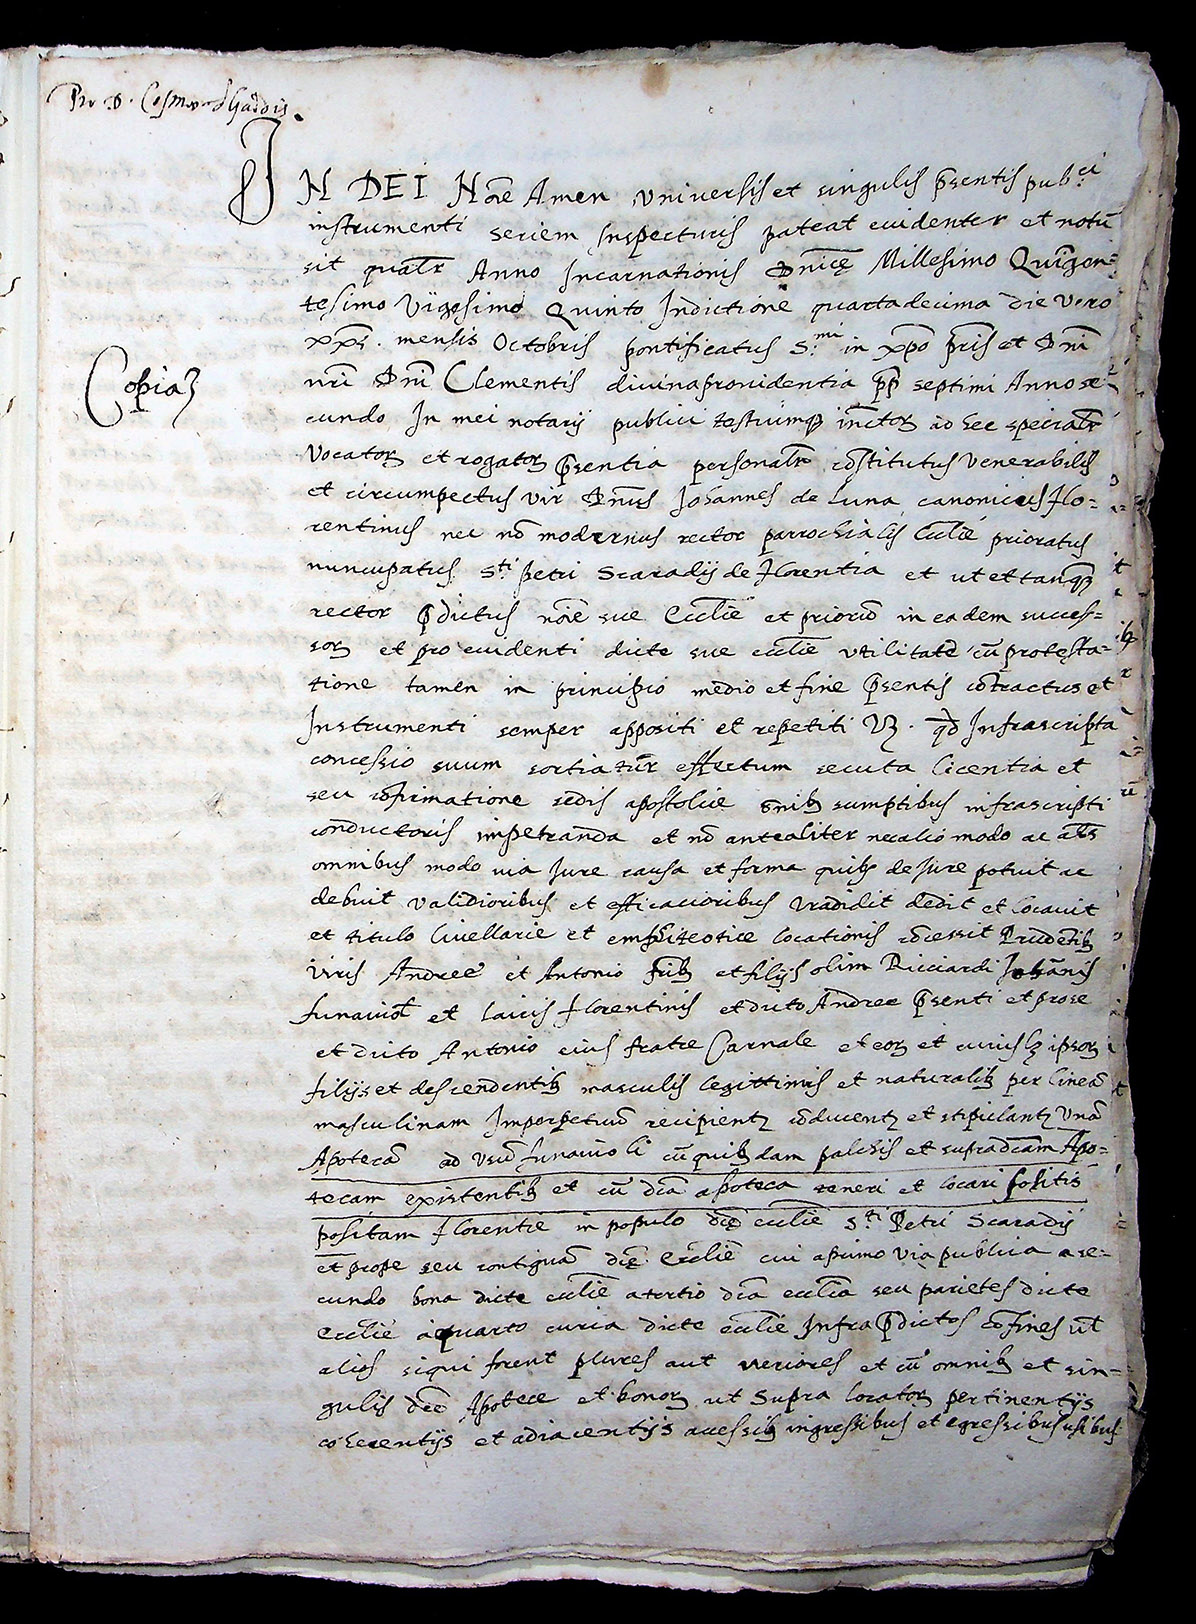 Pro D. Cosmo d Gaddis.
IN DEI Nõe Amen Universis et singulis p̃sentis pub.ci
instrumenti seriem Inspecturis pateat euidenter et notũ
sit qualr̃ Anno Incarnationis Dñice Millesimo Quĩgen=
tesimo Vigesimo Quinto Indictione quartadecima die vero
mensis Octobris pontificatus S.mi in xp̃o p̃ris et Dñi
Copia
nr̃i Dñi Clementis diuina prouidentia pp̃ septimi Anno se
cundo In mei notarij publici testiumq̃ infrctor̃ ad hec specialr̃
Vocator̃ et rogator̃ p̃sentia personalr̃ cõstitutus Venerabilis
et circumpectus vir Dñus Johannes de Luna canonicus Flo=
rentinus nec nõ modernus rector parrochialis Ecclie prioratus
nuncupatus S.ti petri Scaradij de Florentia et ut et tanq̃
rector p̃dictus nõie sue Ecclie et priorũ in eadem succes=
sor̃ et pro euidenti dicte sue ecclie vtilitate cũ protesta=
tione tamen in principio medio et fine p̃sentis cõtractus et
Instrumenti semper appositi et repetiti Vz. qd Infrascripta
concessio suum sortiatur effectum secuta licentia et
seu cõfirmatione sedis apostolice õnibz sumptibus infrascripti
conductoris impetranda et nõ antealiter necalio modo ac als
omnibus modo uia Jure causa et forma quibz de Jure potuit ac
debuit validioribus et efficacioribus tradidit dedit et locauit
et titulo liuellarie et emphiteotice locationis cõcessit Prudẽtibz
Viris Andree et Antonio fr̃ibz et filijs olim Ricciardi Johãnis
funaiuol et laicis florentinis et dicto Andree p̃senti et prose
et dicto Antonio eius fratre Carnale et eor̃ et cuiuslz ipsor̃
filijs et descendentibz masculis legittimis et naturalibz per lineã
masculinam Imperpetuũ recipientz cõducentz et stipulantz Vnã
Apotecã ad Vsũ funaiuoli cũ quibzdam palchis et supradcãm Apo=
tecam existentibz et cũ dcã apoteca teneri et locari solitis
positam Florentie in populo dce ecclie S.ti Petri Scaradij
et prope seu contiguã dce Ecclie cui aprimo via publica ase=
cundo bona dicte ecclie atertio dcã ecclia seu parietes dicte
Ecclie aquarto curia dicte ecclie Infra p̃dictos cõfines ut
alios siqui forent plures aut ueriores et cũ omnibz et sin=
gulis dcẽ Apotece et bonor̃ ut supra locator̃ pertinentijs
coherentijs et adiacentijs accessibz ingressibus et egressibus usibus